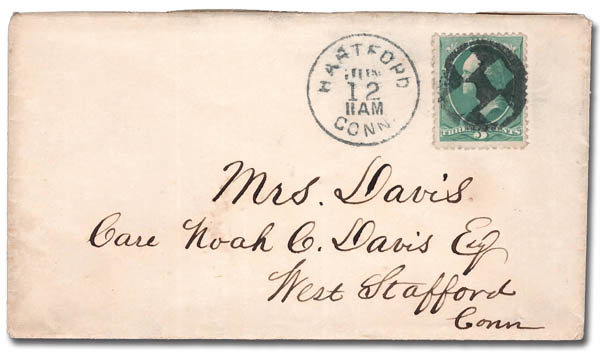 HARTFORD
JUN
12
11AM
CONN.
THREE CENTS
3
Mrs. Davis
Care Noah C. Davis Esq
West Stafford
Conn